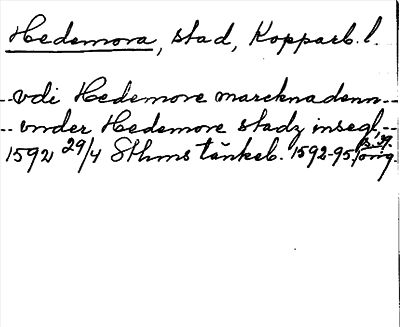 Hedemora, stad, Kopparb. l.
--vdi Hedemore marcknadenn--
--vnder Hedemore stadz insegl,--
1592 29/4 Sthms tänkeb. 1592-95, s. 39. orig.